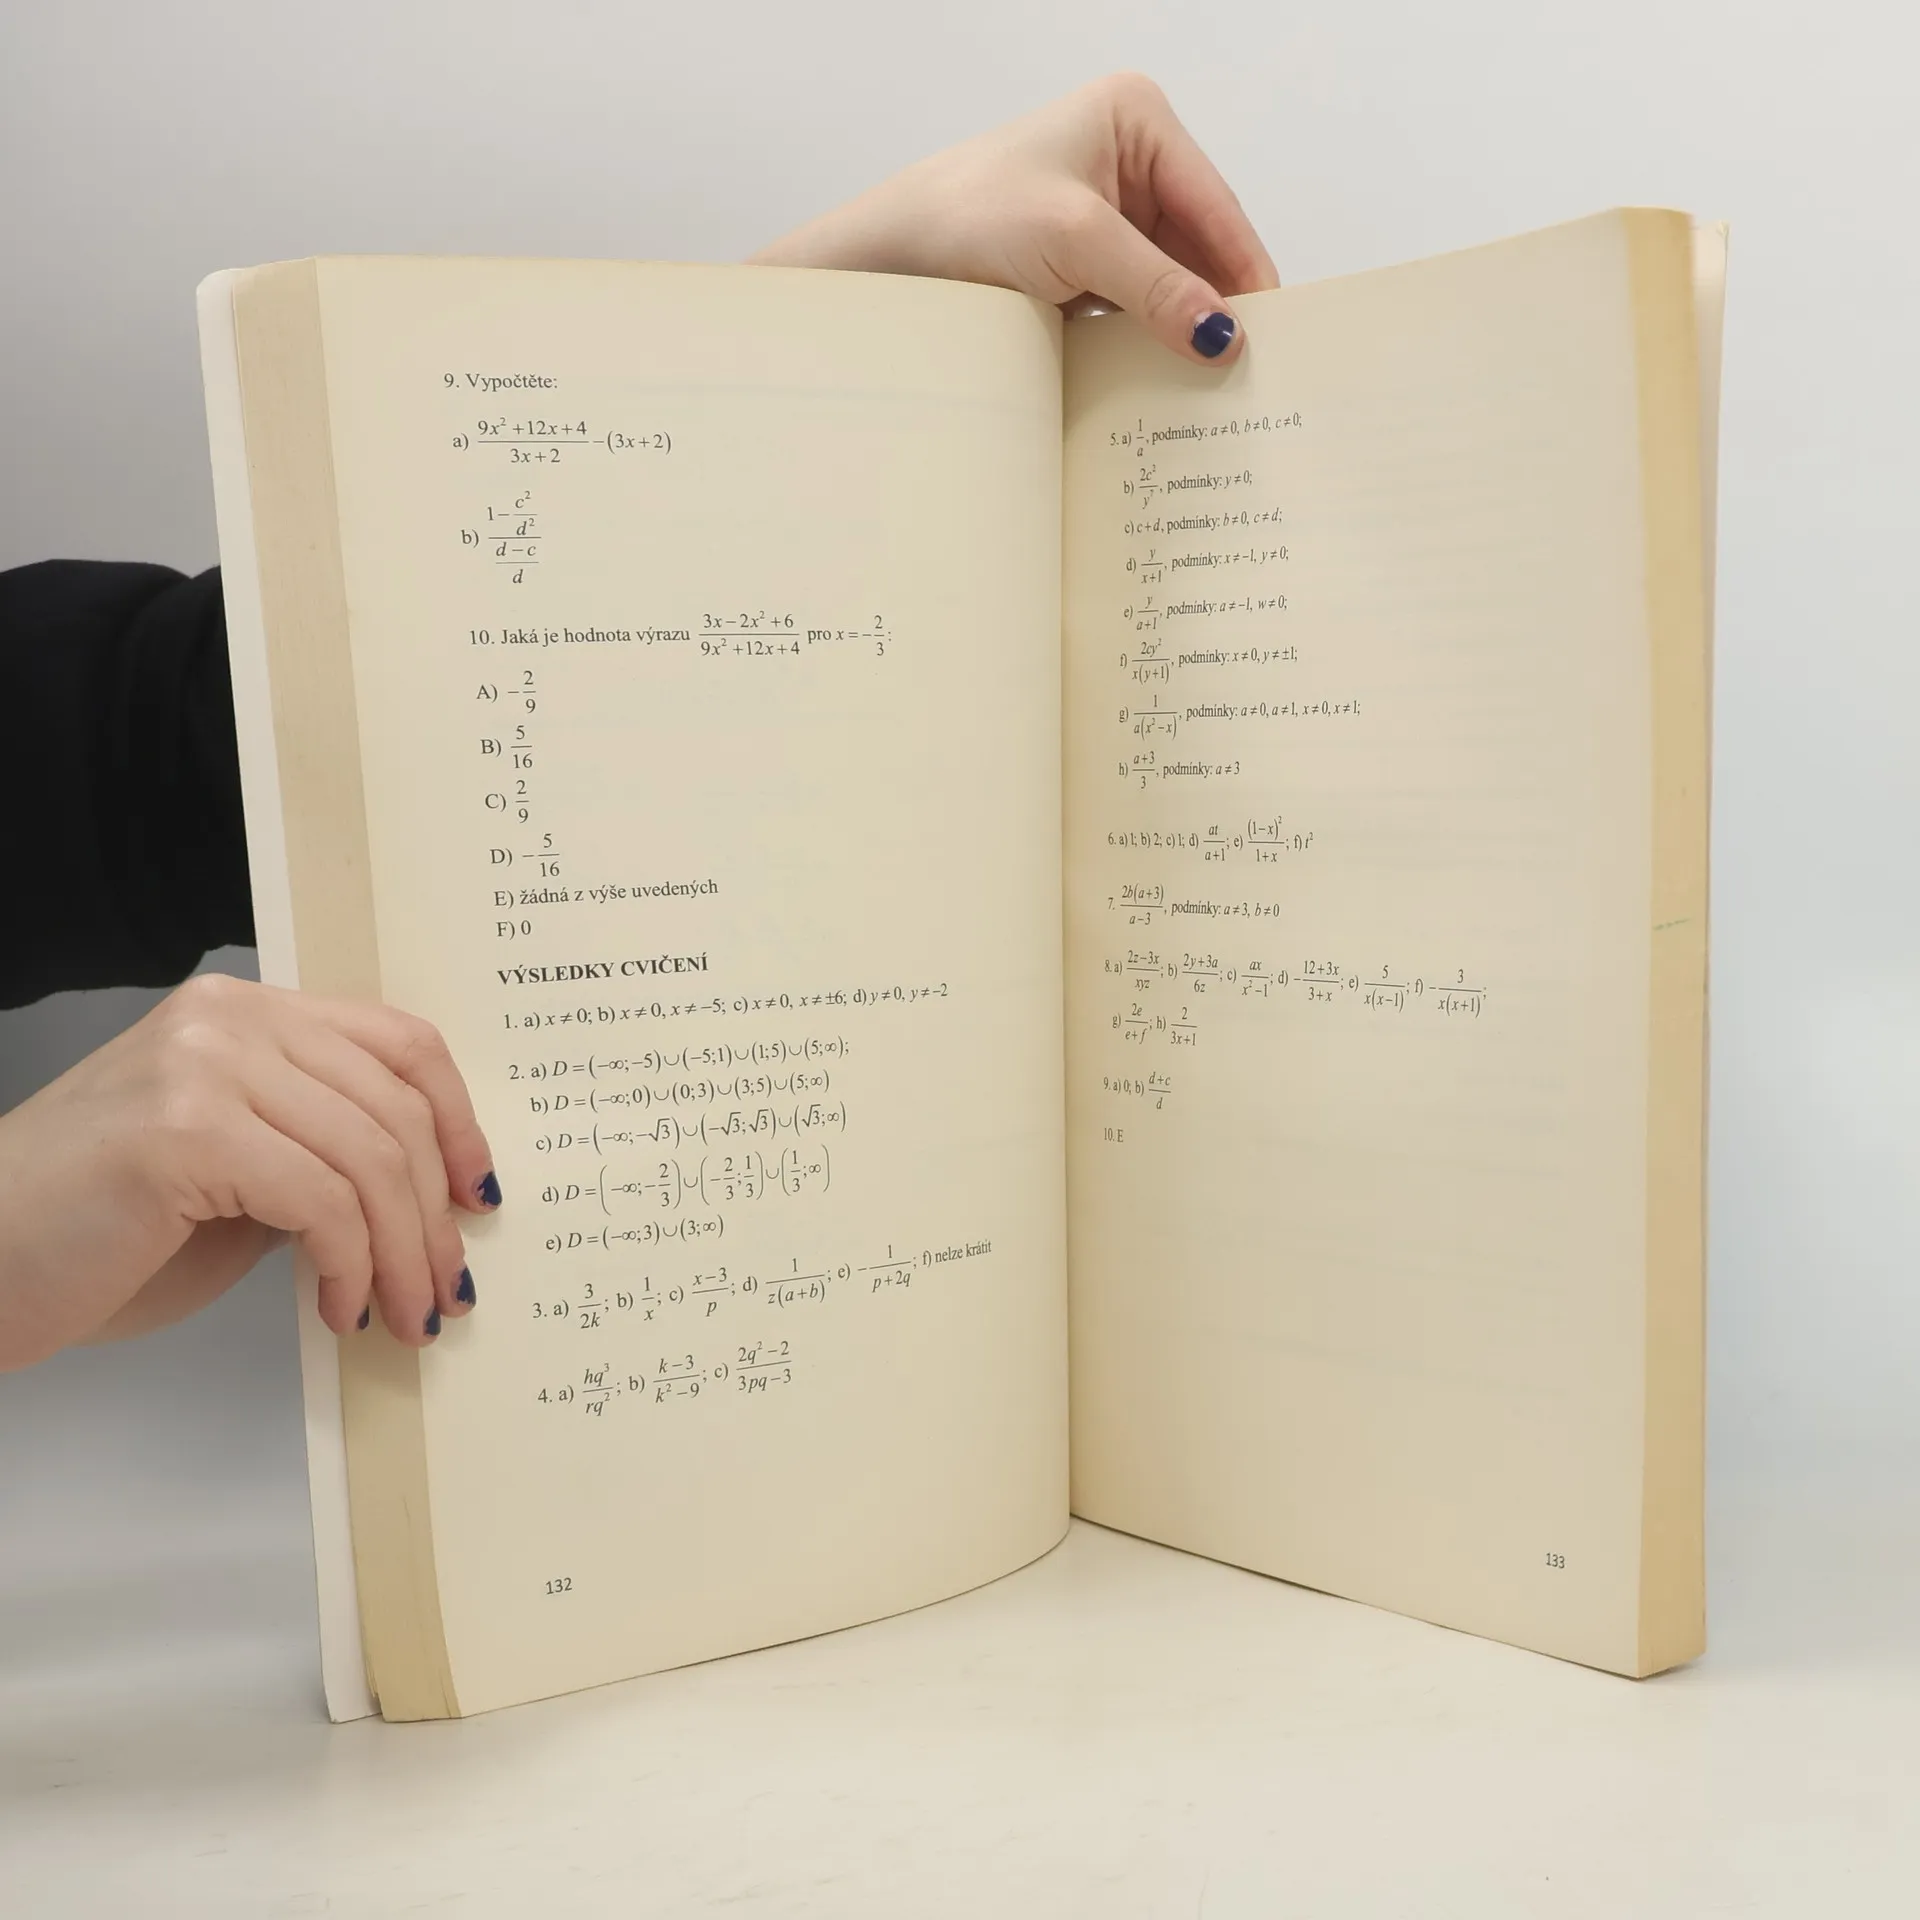 9. Vypočtěte:
a) \frac{9x^2+12x+4}{3x+2}-(3x+2)
b) \frac{1-\frac{c^2}{d^2}}{\frac{d-c}{d}}
10. Jaká je hodnota výrazu \frac{3x-2x^2+6}{9x^2+12x+4} pro x=-\frac{2}{3}:
A) -\frac{2}{9}
B) \frac{5}{16}
C) \frac{2}{9}
D) -\frac{5}{16}
E) žádná z výše uvedených
F) 0
VÝSLEDKY CVIČENÍ
1. a) x≠0; b) x≠0, x≠-5; c) x≠0, x≠±6; d) y≠0, y≠-2
2. a) D=(-∞;-5)∪(-5;1)∪(1;5)∪(5;∞);
b) D=(-∞;0)∪(0;3)∪(3;5)∪(5;∞)
c) D=(-∞;-√3)∪(-√3;√3)∪(√3;∞)
d) D=(-∞;-\frac{2}{3})∪(-\frac{2}{3};\frac{1}{3})∪(\frac{1}{3};∞)
e) D=(-∞;3)∪(3;∞)
3. a) \frac{3}{2k}; b) \frac{1}{x}; c) \frac{x-3}{p}; d) \frac{1}{z(a+b)}; e) -\frac{1}{p+2q}; f) nelze krátit
4. a) \frac{hq^3}{rq^2}; b) \frac{k-3}{k^2-9}; c) \frac{2q^2-2}{3pq-3}
132
5. a) \frac{1}{a}, podmínky: a≠0, b≠0, c≠0;
b) \frac{2c^2}{y^7}, podmínky: y≠0;
c) c+d, podmínky: b≠0, c≠d;
d) \frac{y}{x+1}, podmínky: x≠-1, y≠0;
e) \frac{y}{a+1}, podmínky: a≠-1, w≠0;
f) \frac{2cy^2}{x(y+1)}, podmínky: x≠0, y≠±1;
g) \frac{1}{a(x^2-x)}, podmínky: a≠0, a≠1, x≠0, x≠1;
h) \frac{a+3}{3}, podmínky: a≠3
6. a) 1; b) 2; c) 1; d) \frac{at}{a+1}; e) \frac{(1-x)^2}{1+x}; f) t^2
7. \frac{2b(a+3)}{a-3}, podmínky: a≠3, b≠0
8. a) \frac{2z-3x}{xyz}; b) \frac{2y+3a}{6z}; c) \frac{ax}{x^2-1}; d) -\frac{12+3x}{3+x}; e) \frac{5}{x(x-1)}; f) -\frac{3}{x(x+1)};
g) \frac{2e}{e+f}; h) \frac{2}{3x+1}
9. a) 0; b) \frac{d+c}{d}
10. E
133